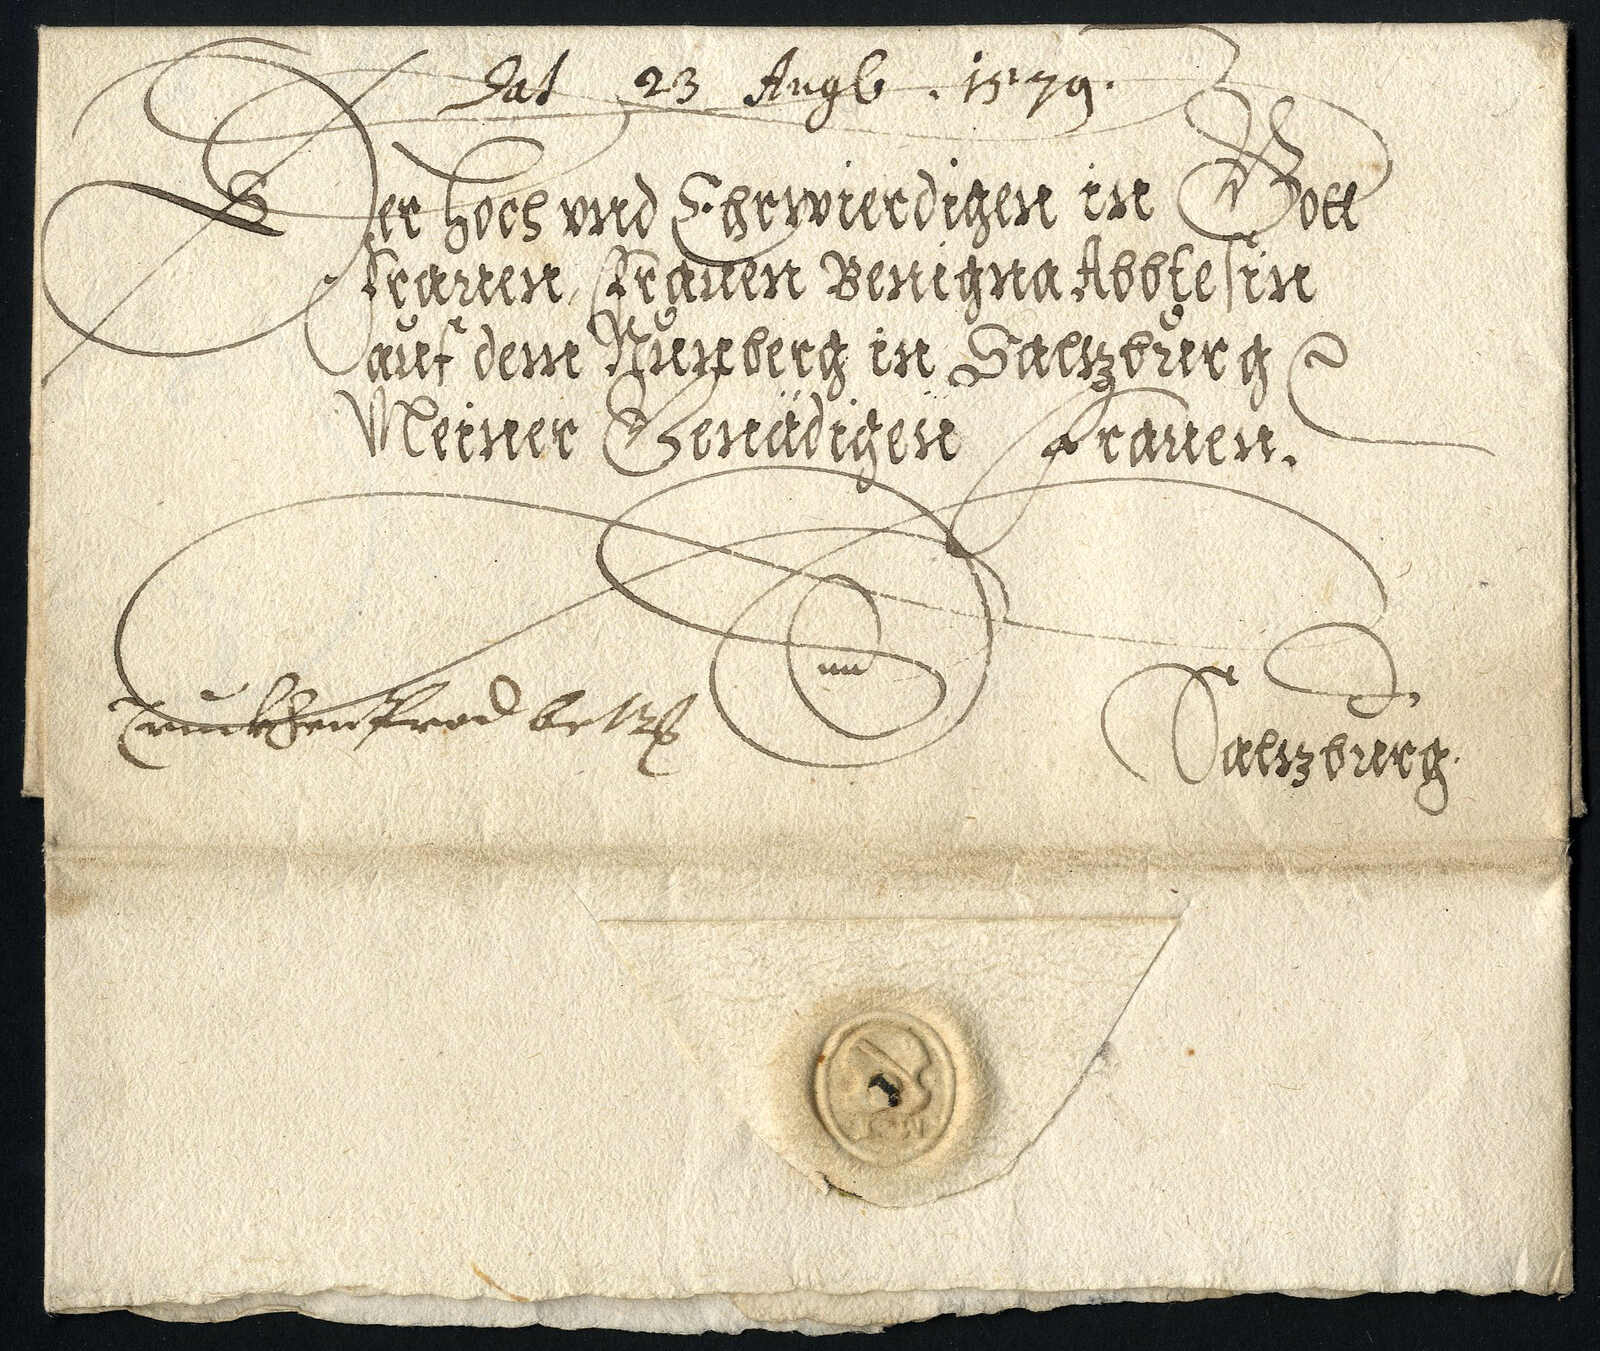 Dat 23 Augs. 1579.
Der Hoch vnd Ehrwierdigen in Gott
Frauen, Frauen Benigna Abbtesin
auf dem Nunberg in Saltzburg
Meiner Genädigen Frauen.
Saltzburg.